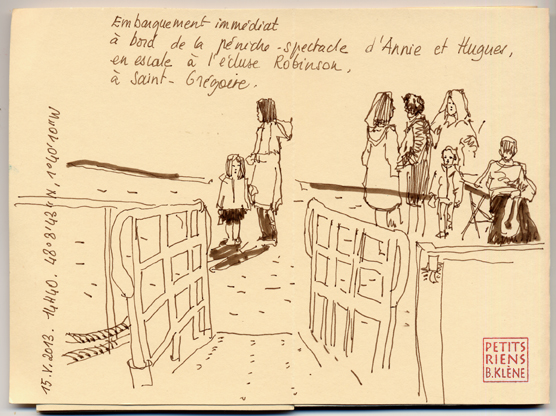 Embarquement immédiat
à bord de la péniche-spectacle d'Annie et Hugues,
en escale à l'écluse Robinson,
à Saint-Grégoire.
15.V.2013. 14H40. 48°8'48"N 1°40'10"W
PETITS
RIENS
B.KLÈNE